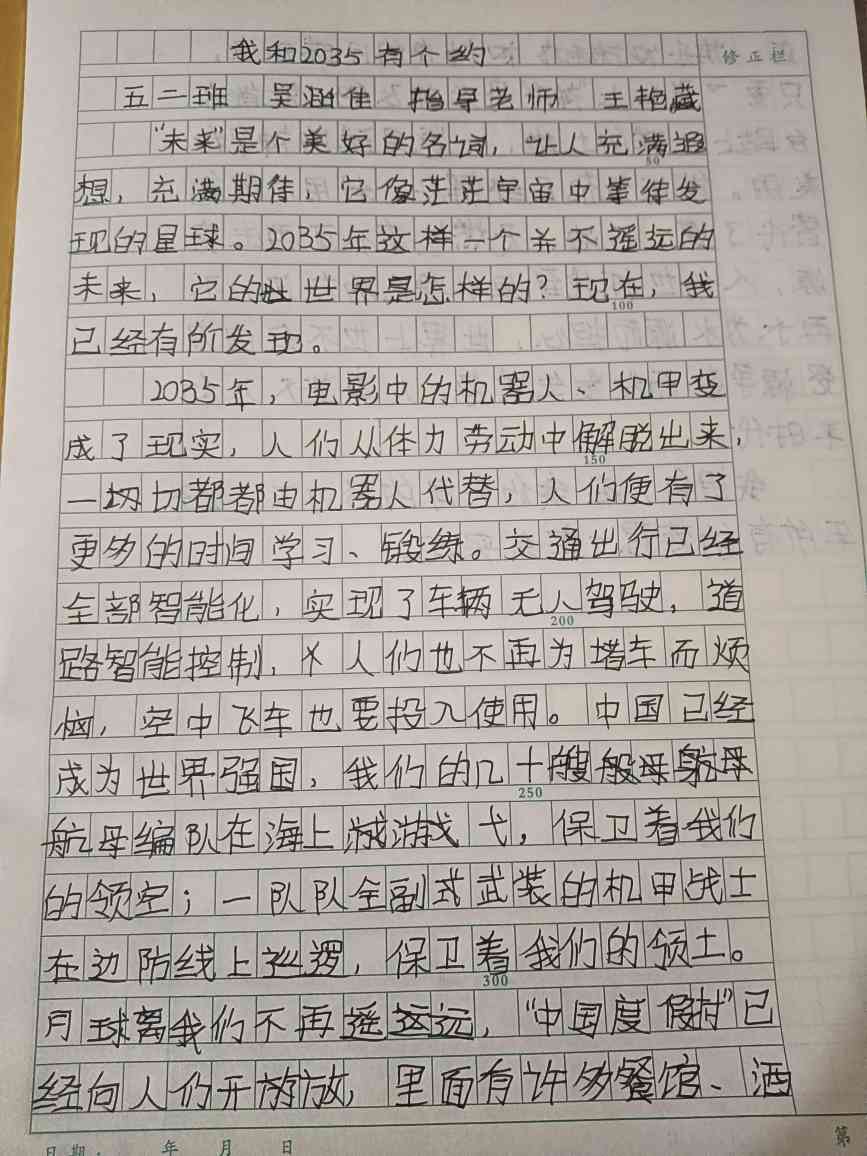 我和2035有个约
修正栏
五二班 吴涵佳 指导老师 王艳藏
“未来”是个美好的名词，让人充满遐
50
想，充满期待，它像茫茫宇宙中等待发
现的星球。2035年这样一个并不遥远的
未来，它的世界是怎样的？现在，我
100
已经有所发现。
2035年，电影中的机器人、机甲变
成了现实，人们从体力劳动中解脱出来，
150
一切切都都由机器人代替，人们便有了
更多的时间学习、锻练。交通出行已经
全部智能化，实现了车辆无人驾驶，道
200
路智能控制，人们也不再为堵车而烦
恼，空中飞车也要投入使用。中国已经
成为世界强国，我们的几十艘航母
250
航母编队在海上游弋，保卫着我们
的领空；一队队全副式武装的机甲战士
在边防线上巡逻，保卫着我们的领土。
300
月球离我们不再遥远，“中国度假村”已
经向人们开放，里面有许多餐馆、酒
日期： 年 月 日
第